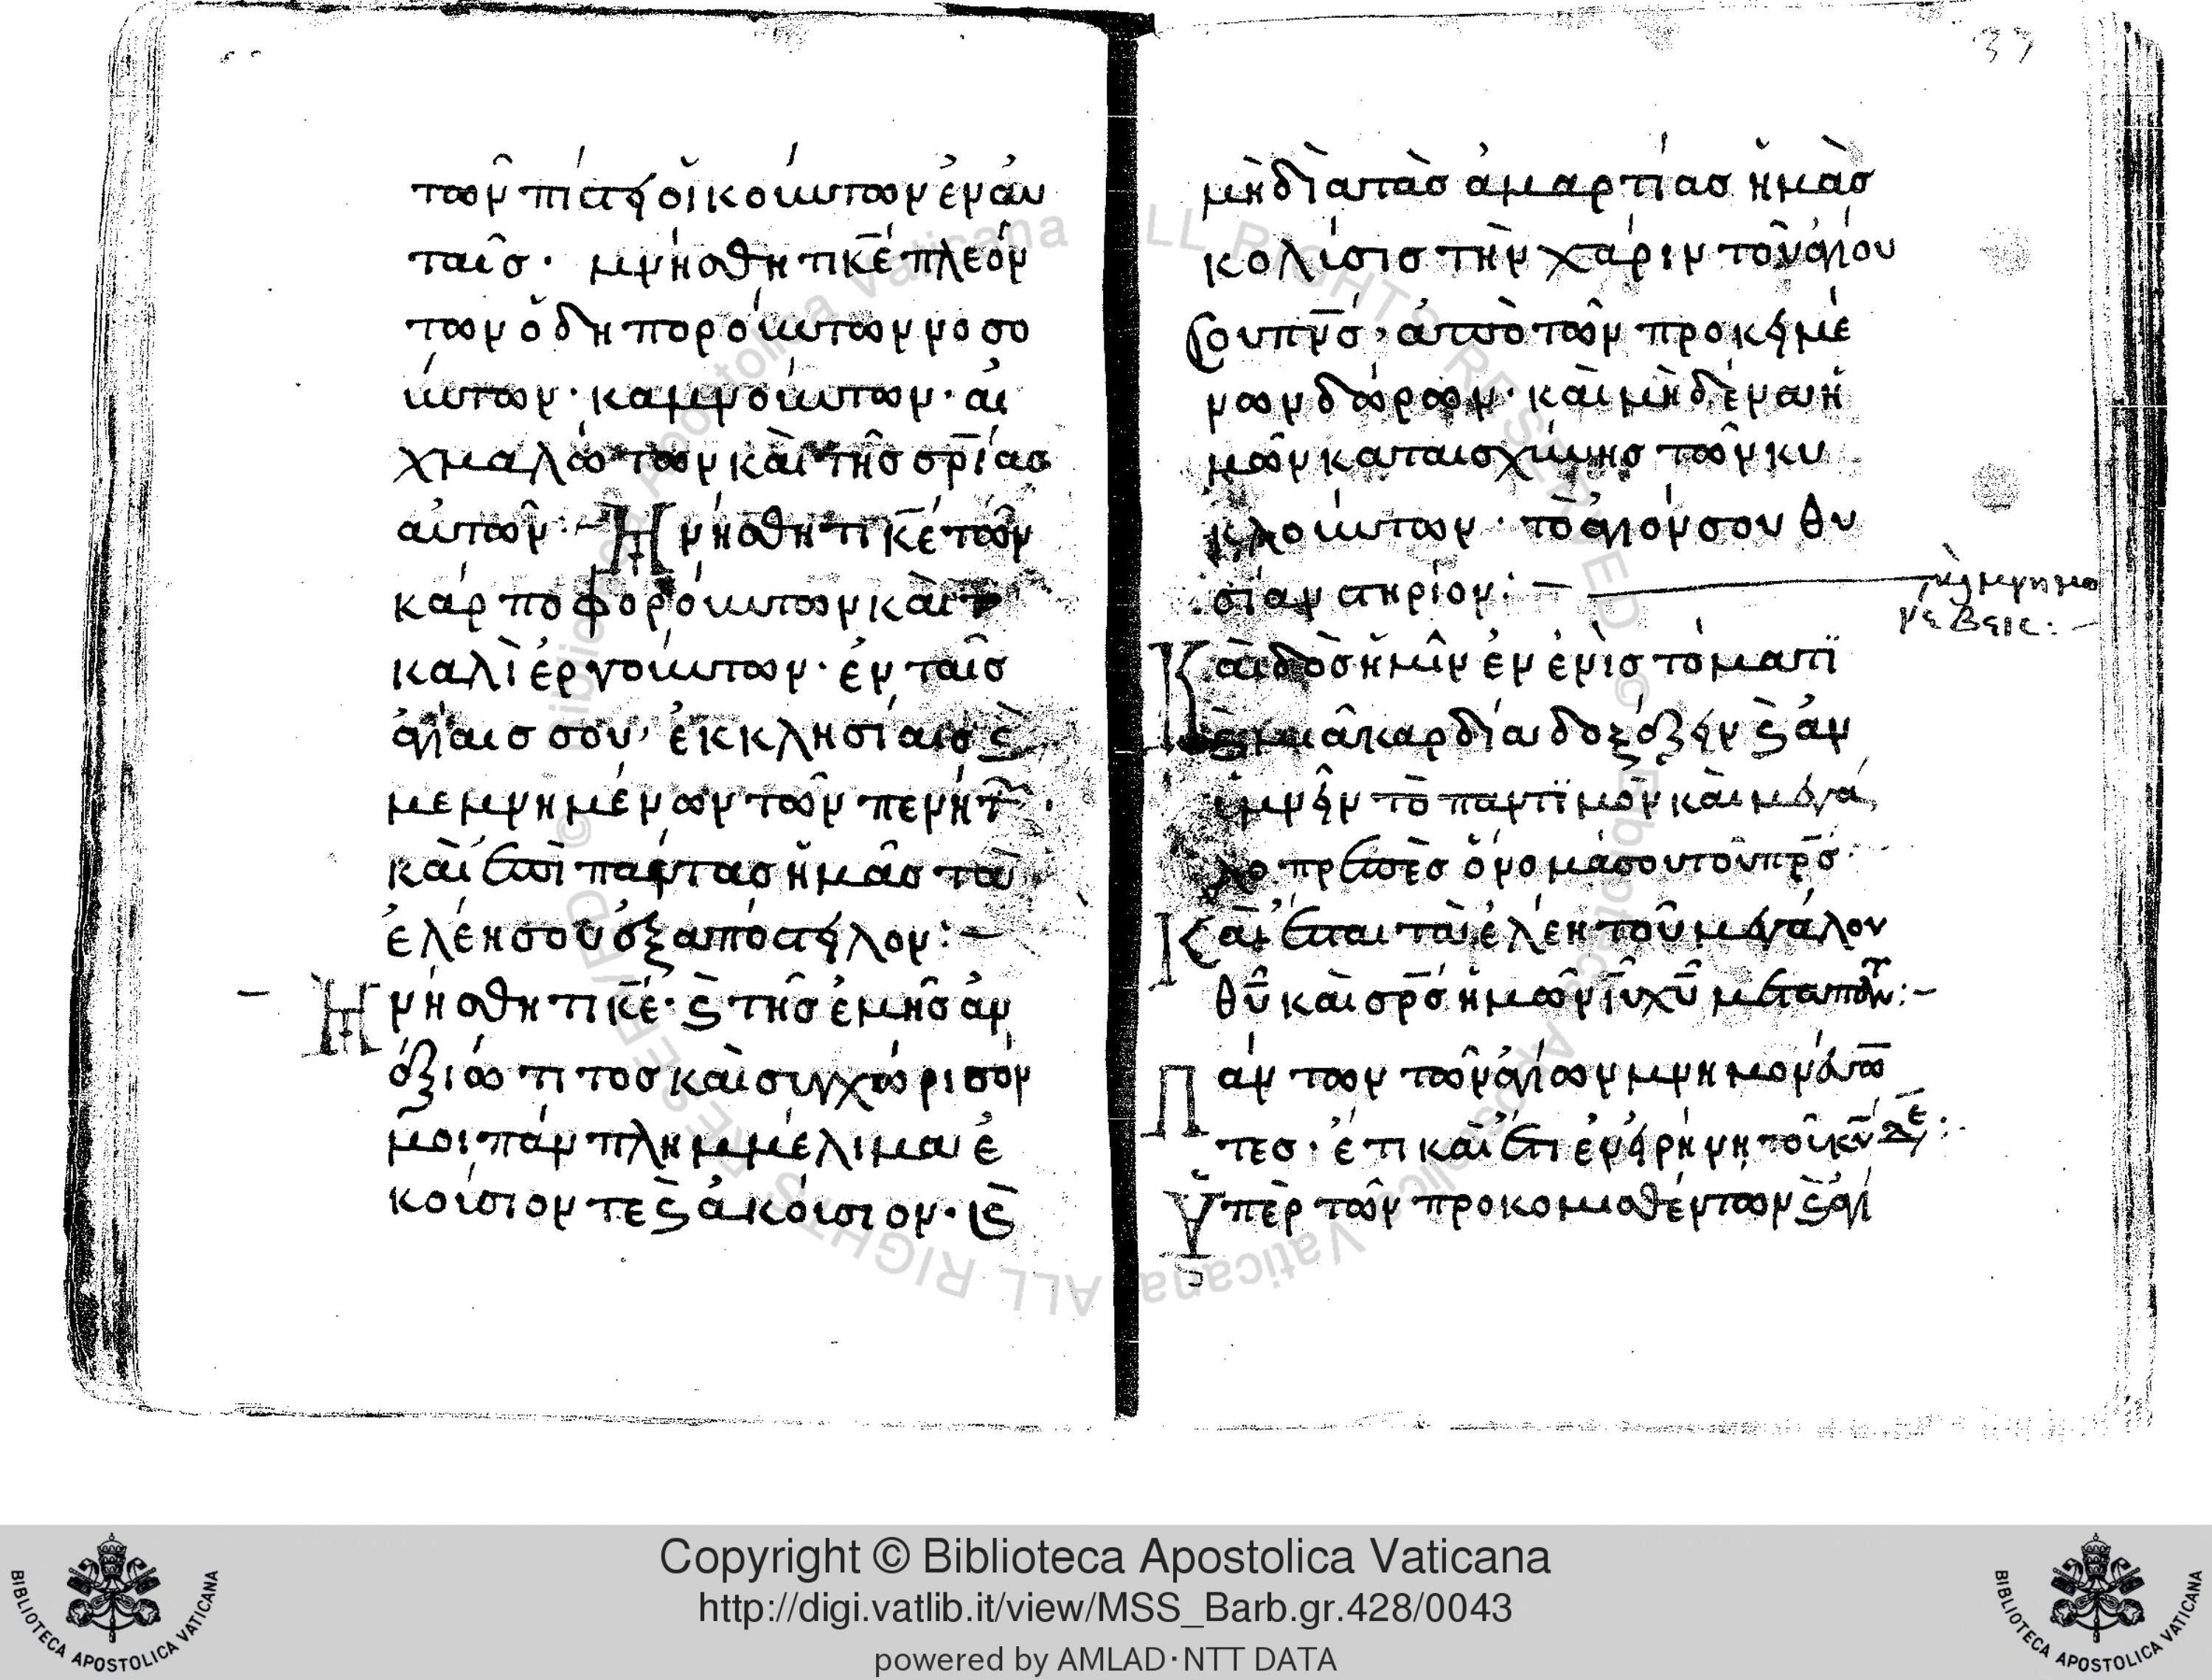 τῶν πίστει οἰκούντων ἐν ἀυ
ταῖσ· μνήσθητι κ̅ε̅ πλεόν
των ὁδηπορούντων νοσο
ύντων· καμνούντων· αἰ
χμαλώτων καὶ τῆσ σ̅ρ̅ίασ
αὐτῶν:– Μνήσθητι κ̅ε̅ τῶν
καρποφορούντων καὶ
καλιεργούντων· ἐν ταῖσ
ἁγίαισ σου ἐκκλησίαισ ϛ̀
μεμνημένων τῶν πενήτ
καὶ ἐπὶ πάντασ ἡμᾶσ τὰ
ἐλέη σου ἐξαπόστειλον:–
Μνήσθητι κ̅ε̅· ϛ̀ τῆσ ἐμῆσ ἀν
αξιώτιτοσ καὶ συγχώρισόν
μοι πάν πλημμέλιμα ἐ
κούσιον τε ϛ̀ ἀκούσιον· ϗ̀
37
μὴ διὰ τὰσ ἁμαρτίασ ἡμὰσ
κολύσισ τὴν χάριν τοῦ ἁγίου
σου π̅ν̅σ̅, ἀπὸ τῶν προκειμέ
νων δώρων· καὶ μηδένα ἡ
μῶν καταισχύνησ τῶν κυ
κλούντων· τὸ ἅγιόν σου θυ
σίαστήριον:–
Καὶ δὸσ ἡμῖν ἐν ἑνὶ στόματι
ϛ̀ μιᾶ καρδία δοξάζειν ϛ̀ ἀν
υμνεῖν τὸ πάντιμον καὶ μεγα
λοπρεπὲσ ὄνομά σου τοῦ π̅ρ̅σ̅·
Καὶ ἔσται τὰ ἐλέη τοῦ μεγάλου
θ̅υ̅ καὶ σ̅ρ̅σ̅ ἡμῶν ι̅υ̅ χ̅υ̅ μετα παντ:–
Πάντων τῶν ἁγίων μνημονεύσα̅
τεσ· ἔτι καὶ ἔτι ἐν εἰρήνη τοῦ κ̅υ̅ δε̅:
Ὑπὲρ τῶν προκομισθέντων ϛ̀ ἁγι
Copyright © Biblioteca Apostolica Vaticana
http://digi.vatlib.it/view/MSS_Barb.gr.428/0043
powered by AMLAD·NTT DATA
BIBLIOTECA APOSTOLICA VATICANA
BIBLIOTECA APOSTOLICA VATICANA